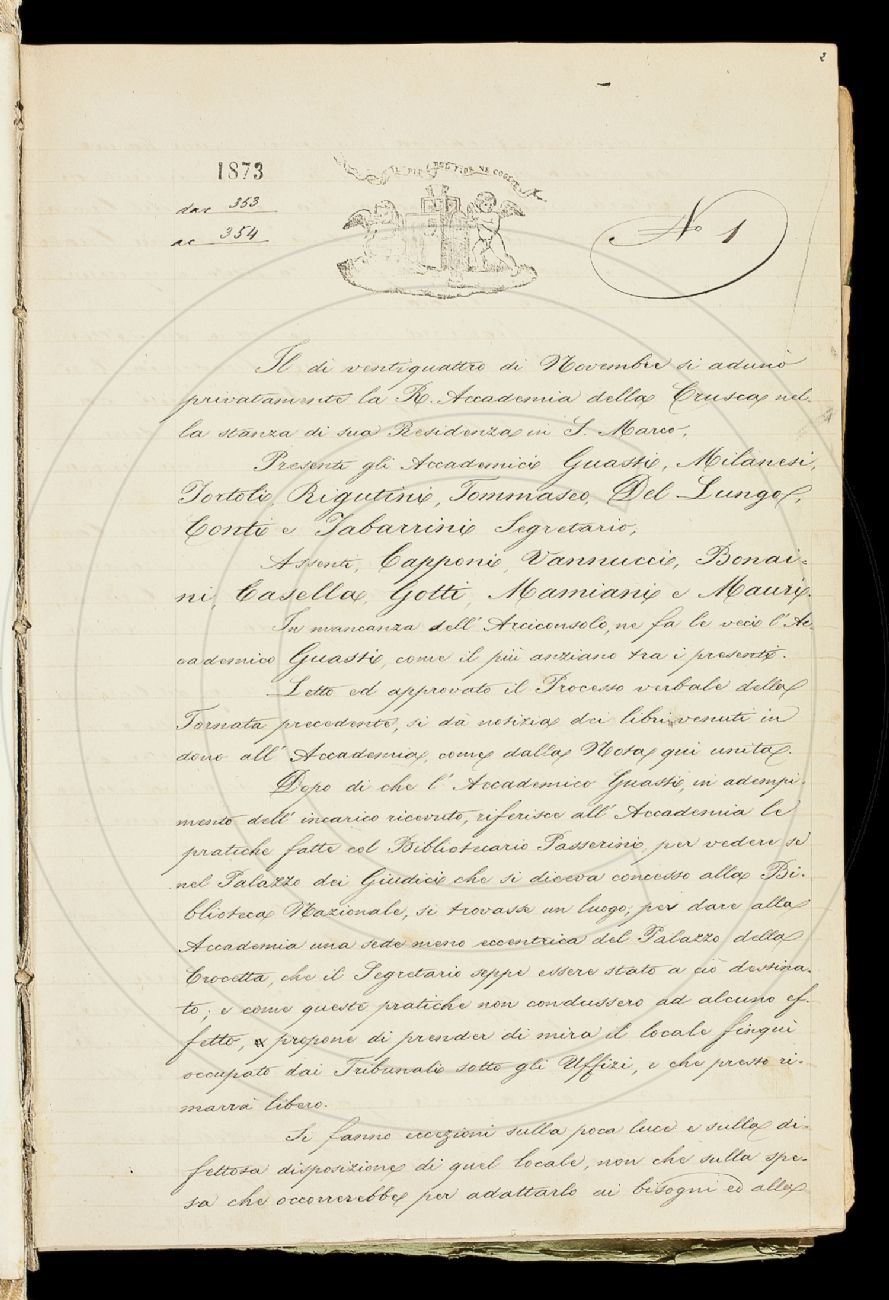 2
1873
dac 353
ac 354
N.o 1
Il dì ventiquattro di Novembre si adunò
privatamente la R. Accademia della Crusca nel-
la stanza di sua Residenza in S. Marco.
Presenti gli Accademici Guasti, Milanesi,
Tortoli, Rigutini, Tommaseo, Del Lungo,
Conti e Tabarrini Segretario,
Assenti, Capponi, Vannucci, Bonai-
ni, Casella, Gotti, Mamiani e Mauri.
In mancanza dell' Arciconsolo, ne fa le veci l' Ac-
cademico Guasti, come il più anziano tra i presenti.
Letto ed approvato il Processo verbale della
Tornata precedente, si dà notizia dei libri venuti in
dono all' Accademia, come dalla Nota qui unita.
Dopo di che l' Accademico Guasti, in adempi-
mento dell' incarico ricevuto, riferisce all' Accademia le
pratiche fatte col Bibliotecario Passerini, per vedere se
nel Palazzo dei Giudici che si diceva concesso alla Bi-
blioteca Nazionale, si trovasse un luogo, per dare alla
Accademia una sede meno eccentrica del Palazzo della
Crocetta, che il Segretario seppe essere stato a ciò destina-
to; e come queste pratiche non condussero ad alcuno ef-
fetto, propone di prender di mira il locale finquì
occupato dai Tribunali sotto gli Uffizi, e che presto ri-
marrà libero.
Si fanno eccezioni sulla poca luce e sulla di-
fettosa disposizione di quel locale, non che sulla spe-
sa che occorrerebbe per adattarlo ai bisogni ed alla